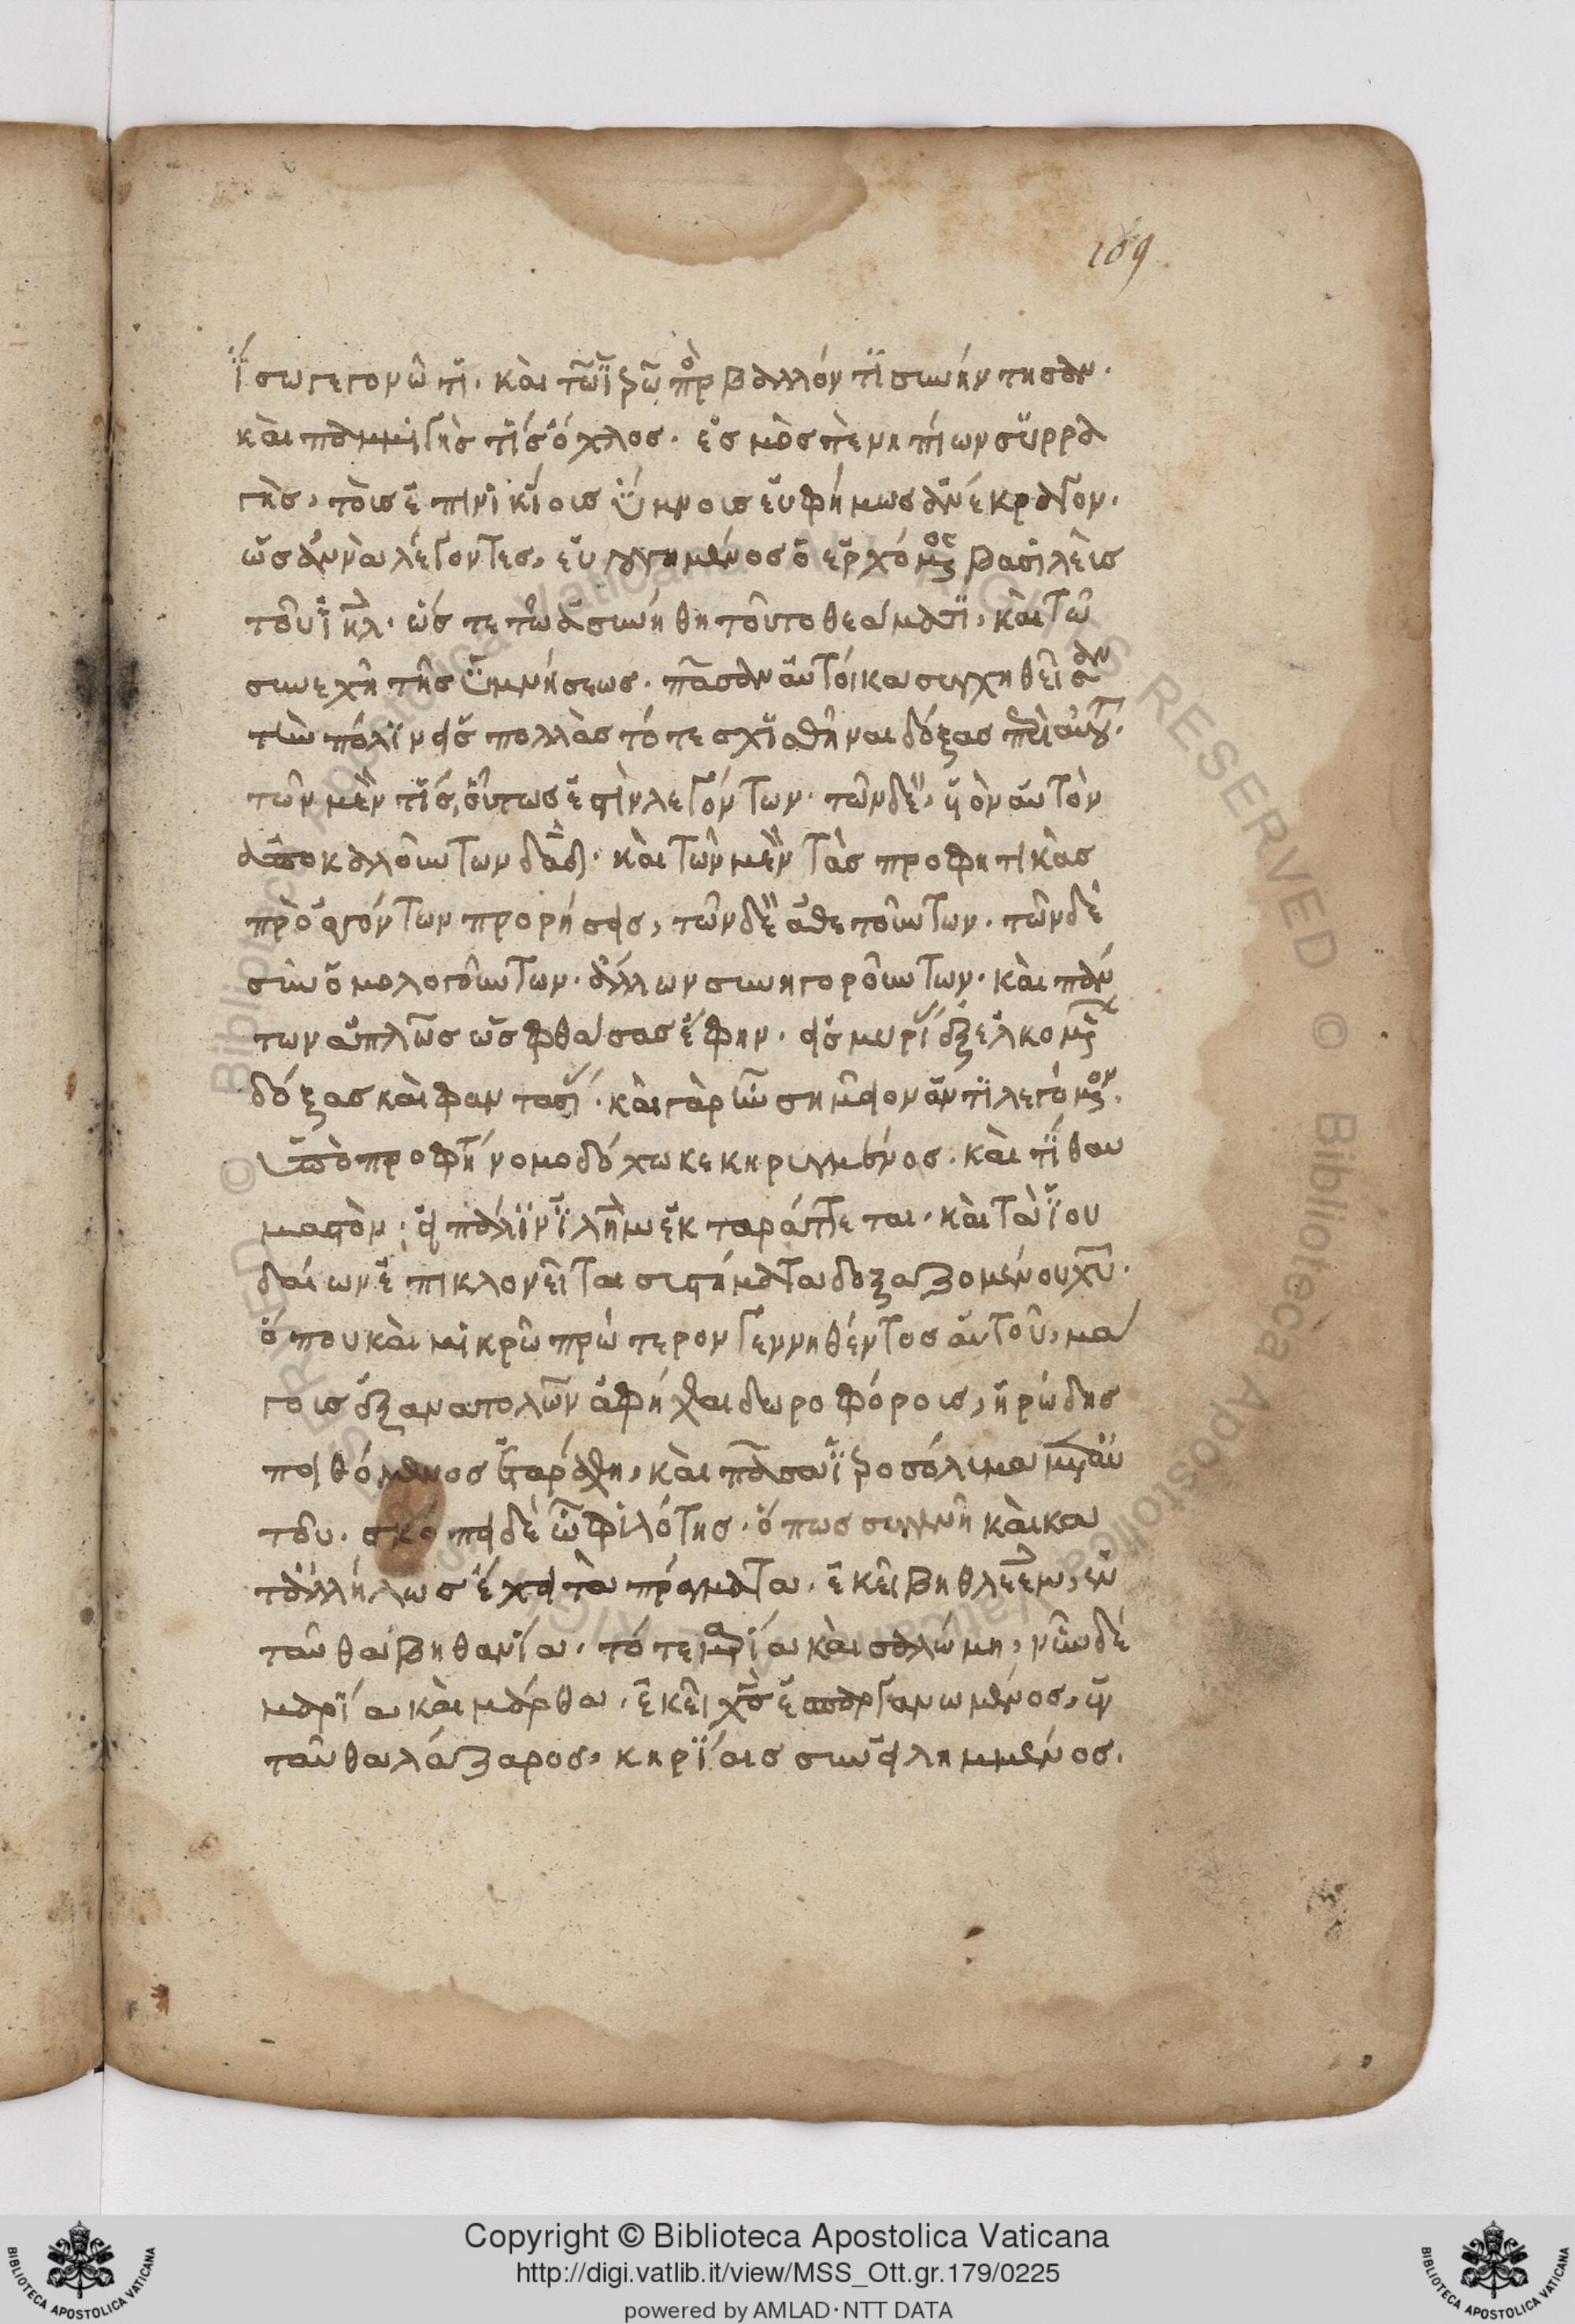 189
ἴσω γεγονότι. καὶ τῶ ἱερῶ προβάλλοντι συνήντησαν.
καὶ παμμιγής τις ὄχλος. ἑσμὸς πενηπίων συρρα
γὴς, τοῖς ἐπινικίοις ὕμνοις εὐφήμως ἀνέκραγον.
ὡσαννὰ λέγοντες, εὐλογημένος ὁ ἐρχόμενος βασιλεὺς
τοῦ ἰηλ. ὥστε τῶ ἀσυνήθη τούτο θεάματι, καὶ τῶ
συνεχῆ τῆς ὑμνήσεως. πᾶσαν αὐτίκα συγχηθεῖσαν
τὴν πόλιν εἰς πολλὰς τότε σχισθῆναι δόξας περὶ αὐτοῦ.
τῶν μὲν τίς οὗτος ἐστὶν λεγόντων. τῶν δὲ, υἱὸν αὐτὸν
ἀποκαλούντων δαδ. καὶ τῶν μὲν τὰς προφητικὰς
προαγόντων προρήσεις, τῶν δὲ ἀθετούντων. τῶν δὲ
συνομολογούντων. ἄλλων συνηγορούντων. καὶ πάν
των ἁπλῶς ὡς φθάσας ἔφην. εἰς μυρίας ἐξελκομένων
δόξας καὶ φαντασίας. καὶ γὰρ ἦν σημεῖον ἀντιλεγόμενον.
ὑπὸ προφήτου νομοδόχω κεκηρυγμένος. καὶ τί θαυ
μαστὸν, εἰ πάλιν ιλημ ἐκταράττεται. καὶ τὰ ἰου
δαίων ἐπικλονεῖται συστήματα δοξαζομένου χυ.
ὅπου καὶ μικρῶ πρώτερον γεννηθέντος αὐτοῦ, μά
γοις ἐξ ἀνατολῶν ἀφῆχθαι δωροφόροις, ἡρώδης
πειθόμενος ἐταράχθη, καὶ πᾶσα ἱεροσόλυμα μετ αὐ
τοῦ. σκόπει δέ ὦ φιλότης. ὅπως συγγενῆ καὶ κα
τάλληλως ἔχει τὰ πράγματα. ἐκεῖ βηθλεὲμ, ἐν
ταῦθα βηθανία. τότε μαρία καὶ σαλώμη, νῦν δὲ
μαρία καὶ μάρθα. ἐκεῖ χς ἐσπαργανωμένος, ἐν
ταῦθα λάζαρος, κηρίαις συνειλημμένος.
Copyright © Biblioteca Apostolica Vaticana
http://digi.vatlib.it/view/MSS_Ott.gr.179/0225
powered by AMLAD·NTT DATA
BIBLIOTECA APOSTOLICA VATICANA
BIBLIOTECA APOSTOLICA VATICANA